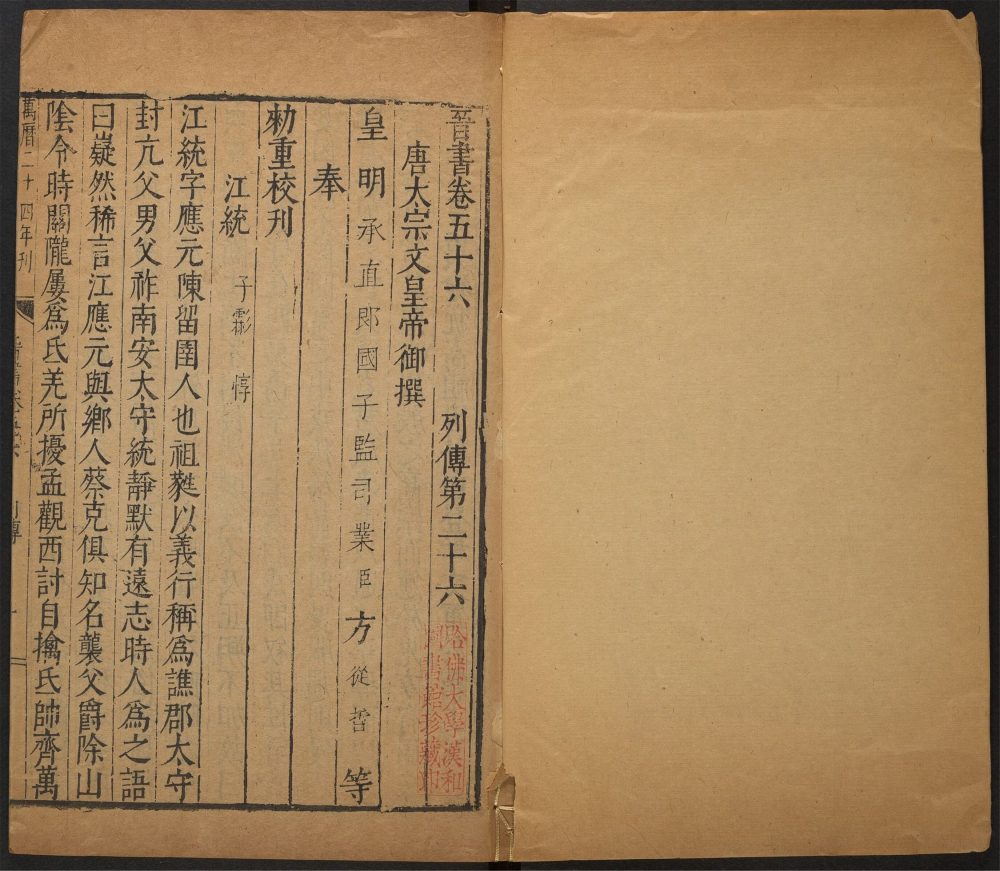 晉書卷五十六 列傳第二十六
唐太宗文皇帝御撰
皇明承直郎國子監司業臣方從哲等
奉
勅重校刊
江統 子虨 惇
江統字應元陳留圉人也祖蕤以義行稱爲譙郡太守
封亢父男父祚南安太守統靜默有遠志時人爲之語
曰嶷然稀言江應元與鄉人蔡克俱知名襲父爵除山
陰令時關隴屢爲氐羌所擾孟觀西討自擒氐帥齊萬
萬曆二十四年刊 晉書卷五十六 列傳 一
哈佛大學漢和
圖書館珍藏印